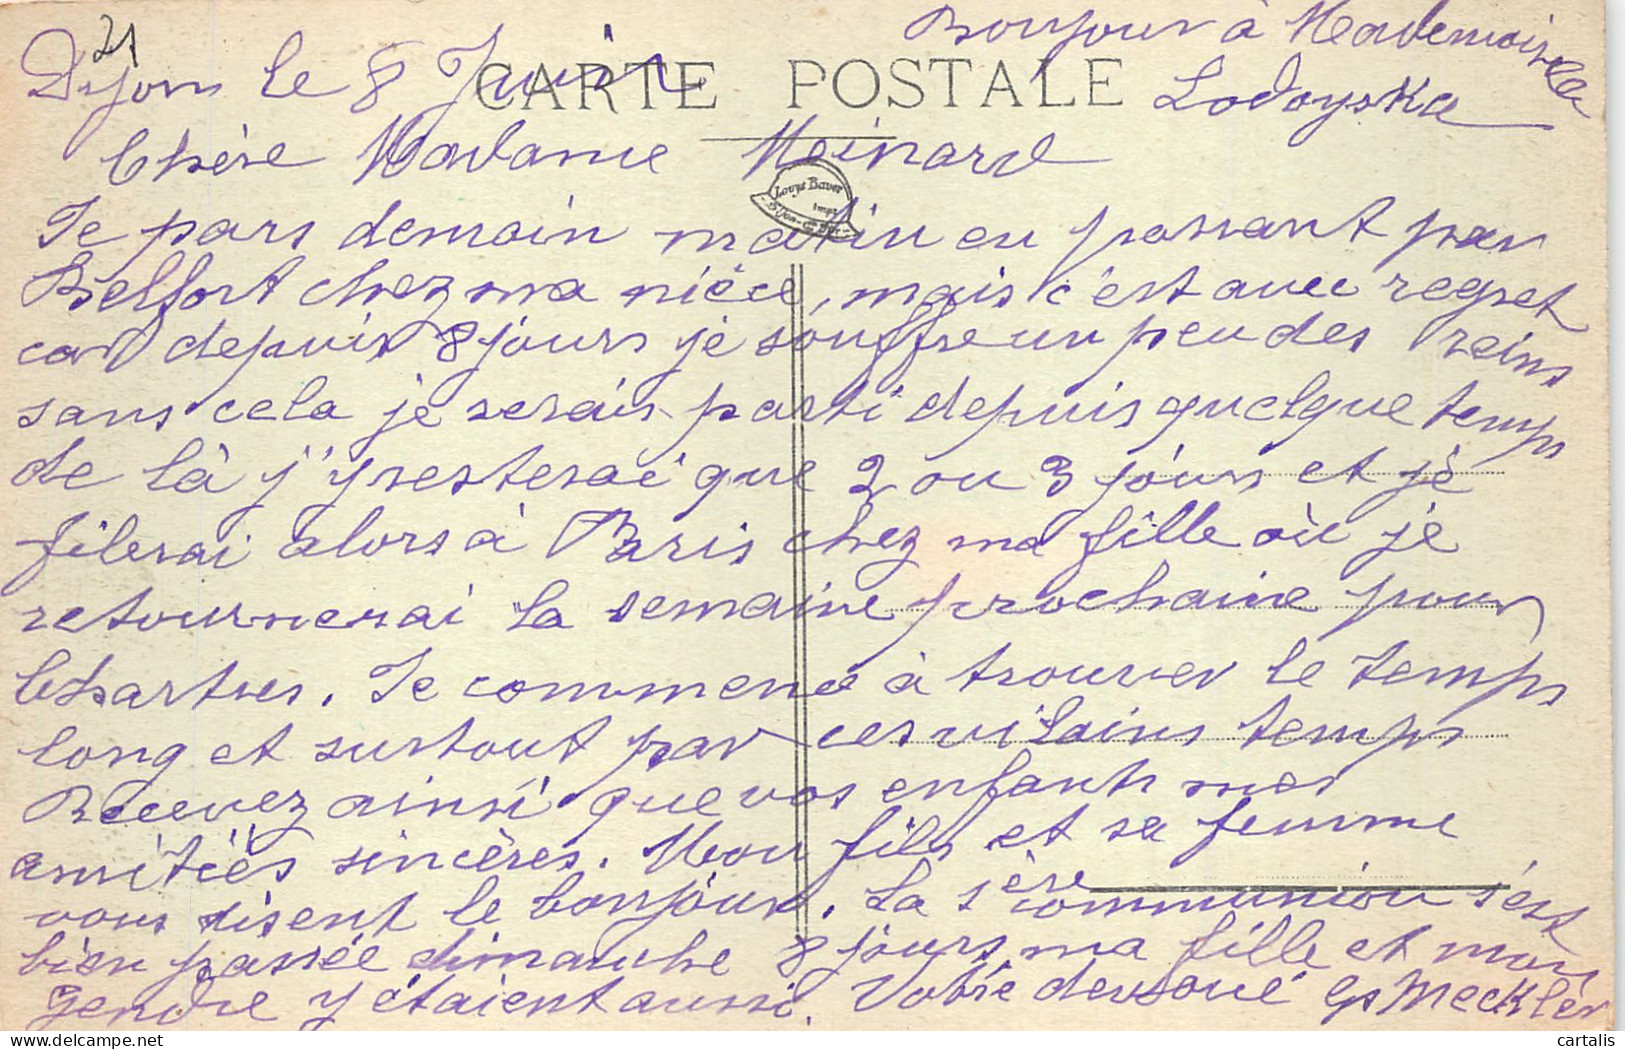 21
Bonjour à Mademoiselle
Dijon le 8 Juin
CARTE POSTALE
Lodoyska
Chère Madame Moinard
Louys Bauer
Je pars demain matin en passant par
Belfort chez ma nièce, mais c'est avec regret
car depuis 8 jours je souffre un peu des reins
sans cela je serais parti depuis quelque temps
de là j'y resterai que 2 ou 3 jours et je
filerai alors à Paris chez ma fille où je
retournerai la semaine prochaine pour
Chartres. Je commence à trouver le temps
long et surtout par ces vilains temps
Recevez ainsi que vos enfants mes
amitiés sincères. Mon fils et sa femme
vous disent le bonjour. La 1ère communion s'est
bien passée dimanche 8 jours, ma fille et mon
gendre y étaient aussi. Votre dévoué Gs Meckler
cartalis
delcampe.net